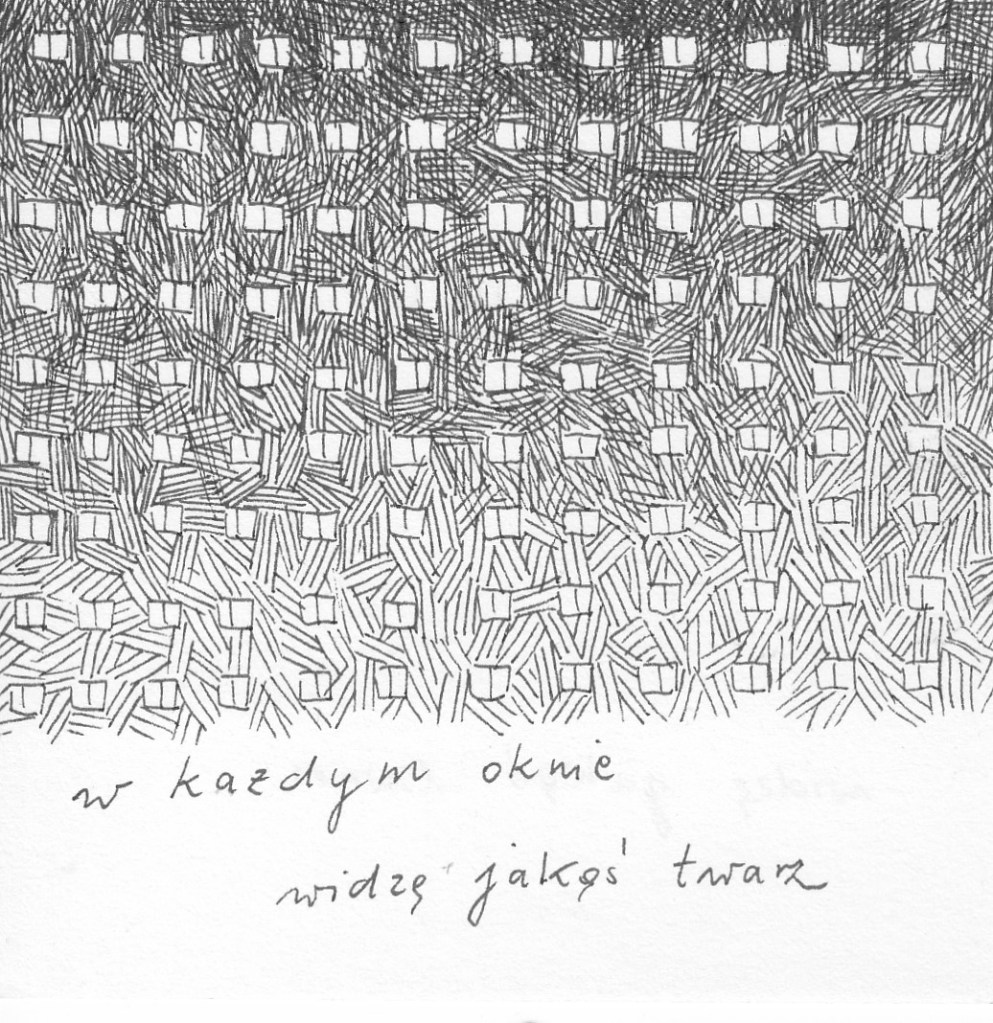 w każdym oknie
widzę jakąś twarz